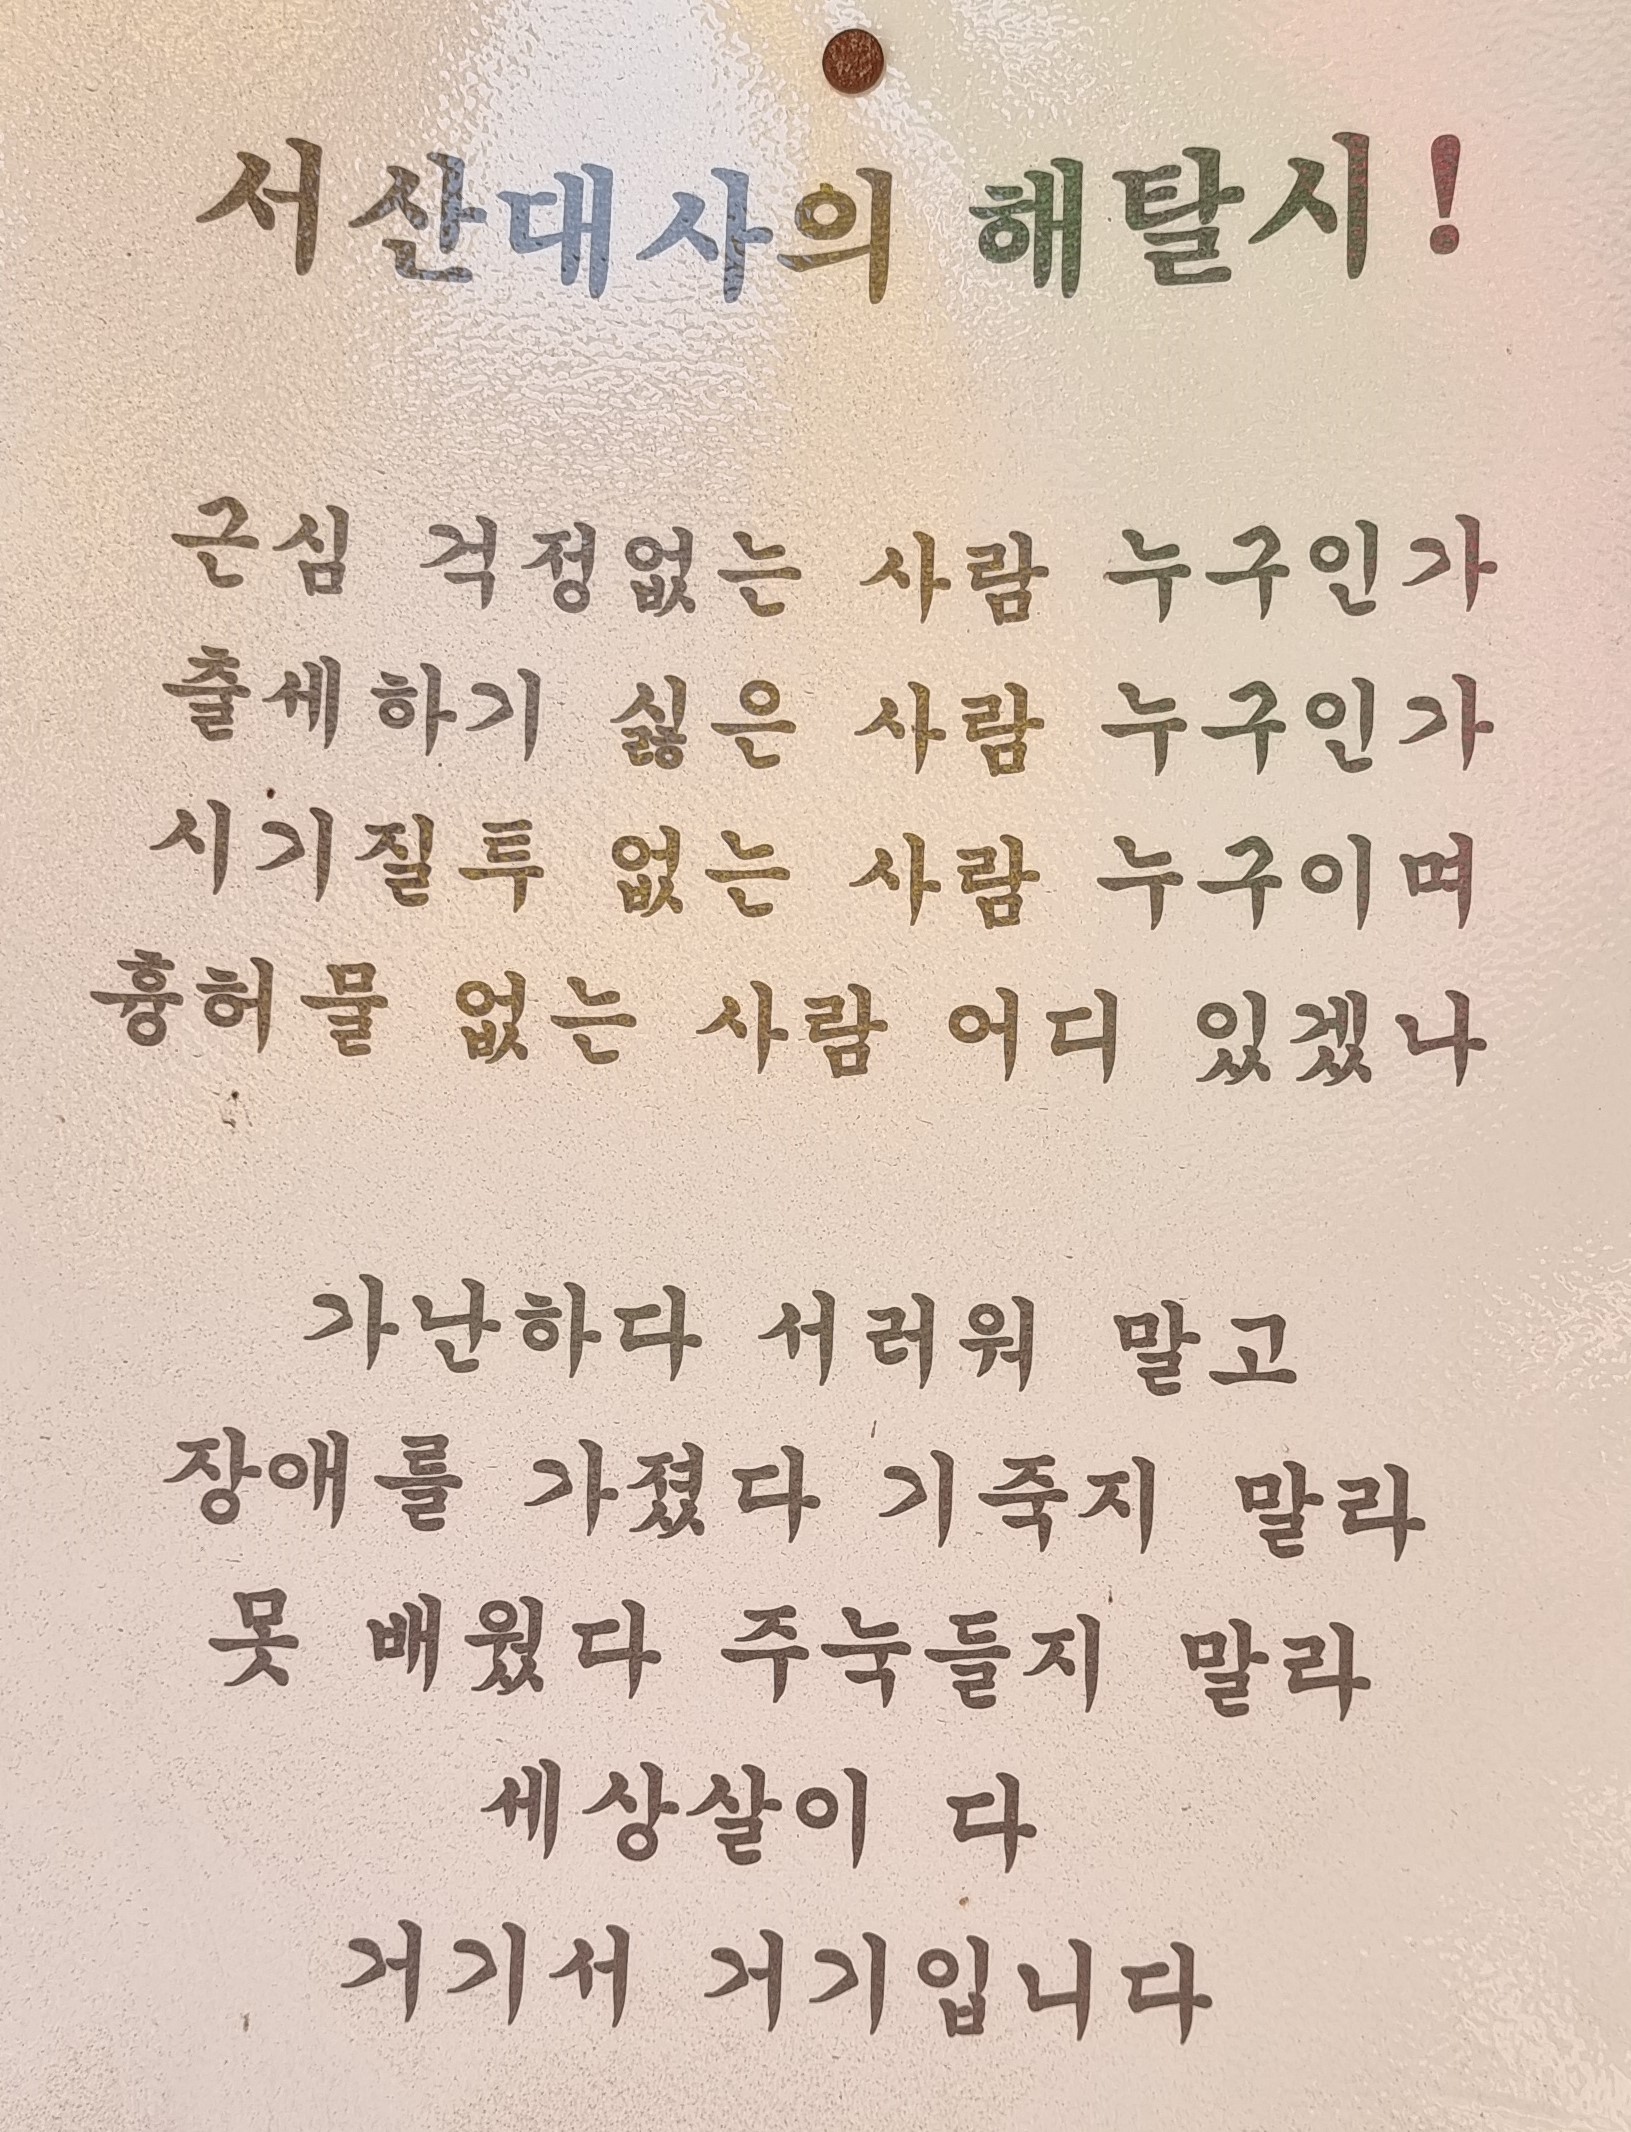 서산대사의 해탈시!
근심 걱정없는 사람 누구인가
출세하기 싫은 사람 누구인가
시기질투 없는 사람 누구이며
흉허물 없는 사람 어디 있겠나
가난하다 서러워 말고
장애를 가졌다 기죽지 말라
못 배웠다 주눅들지 말라
세상살이 다
거기서 거기입니다